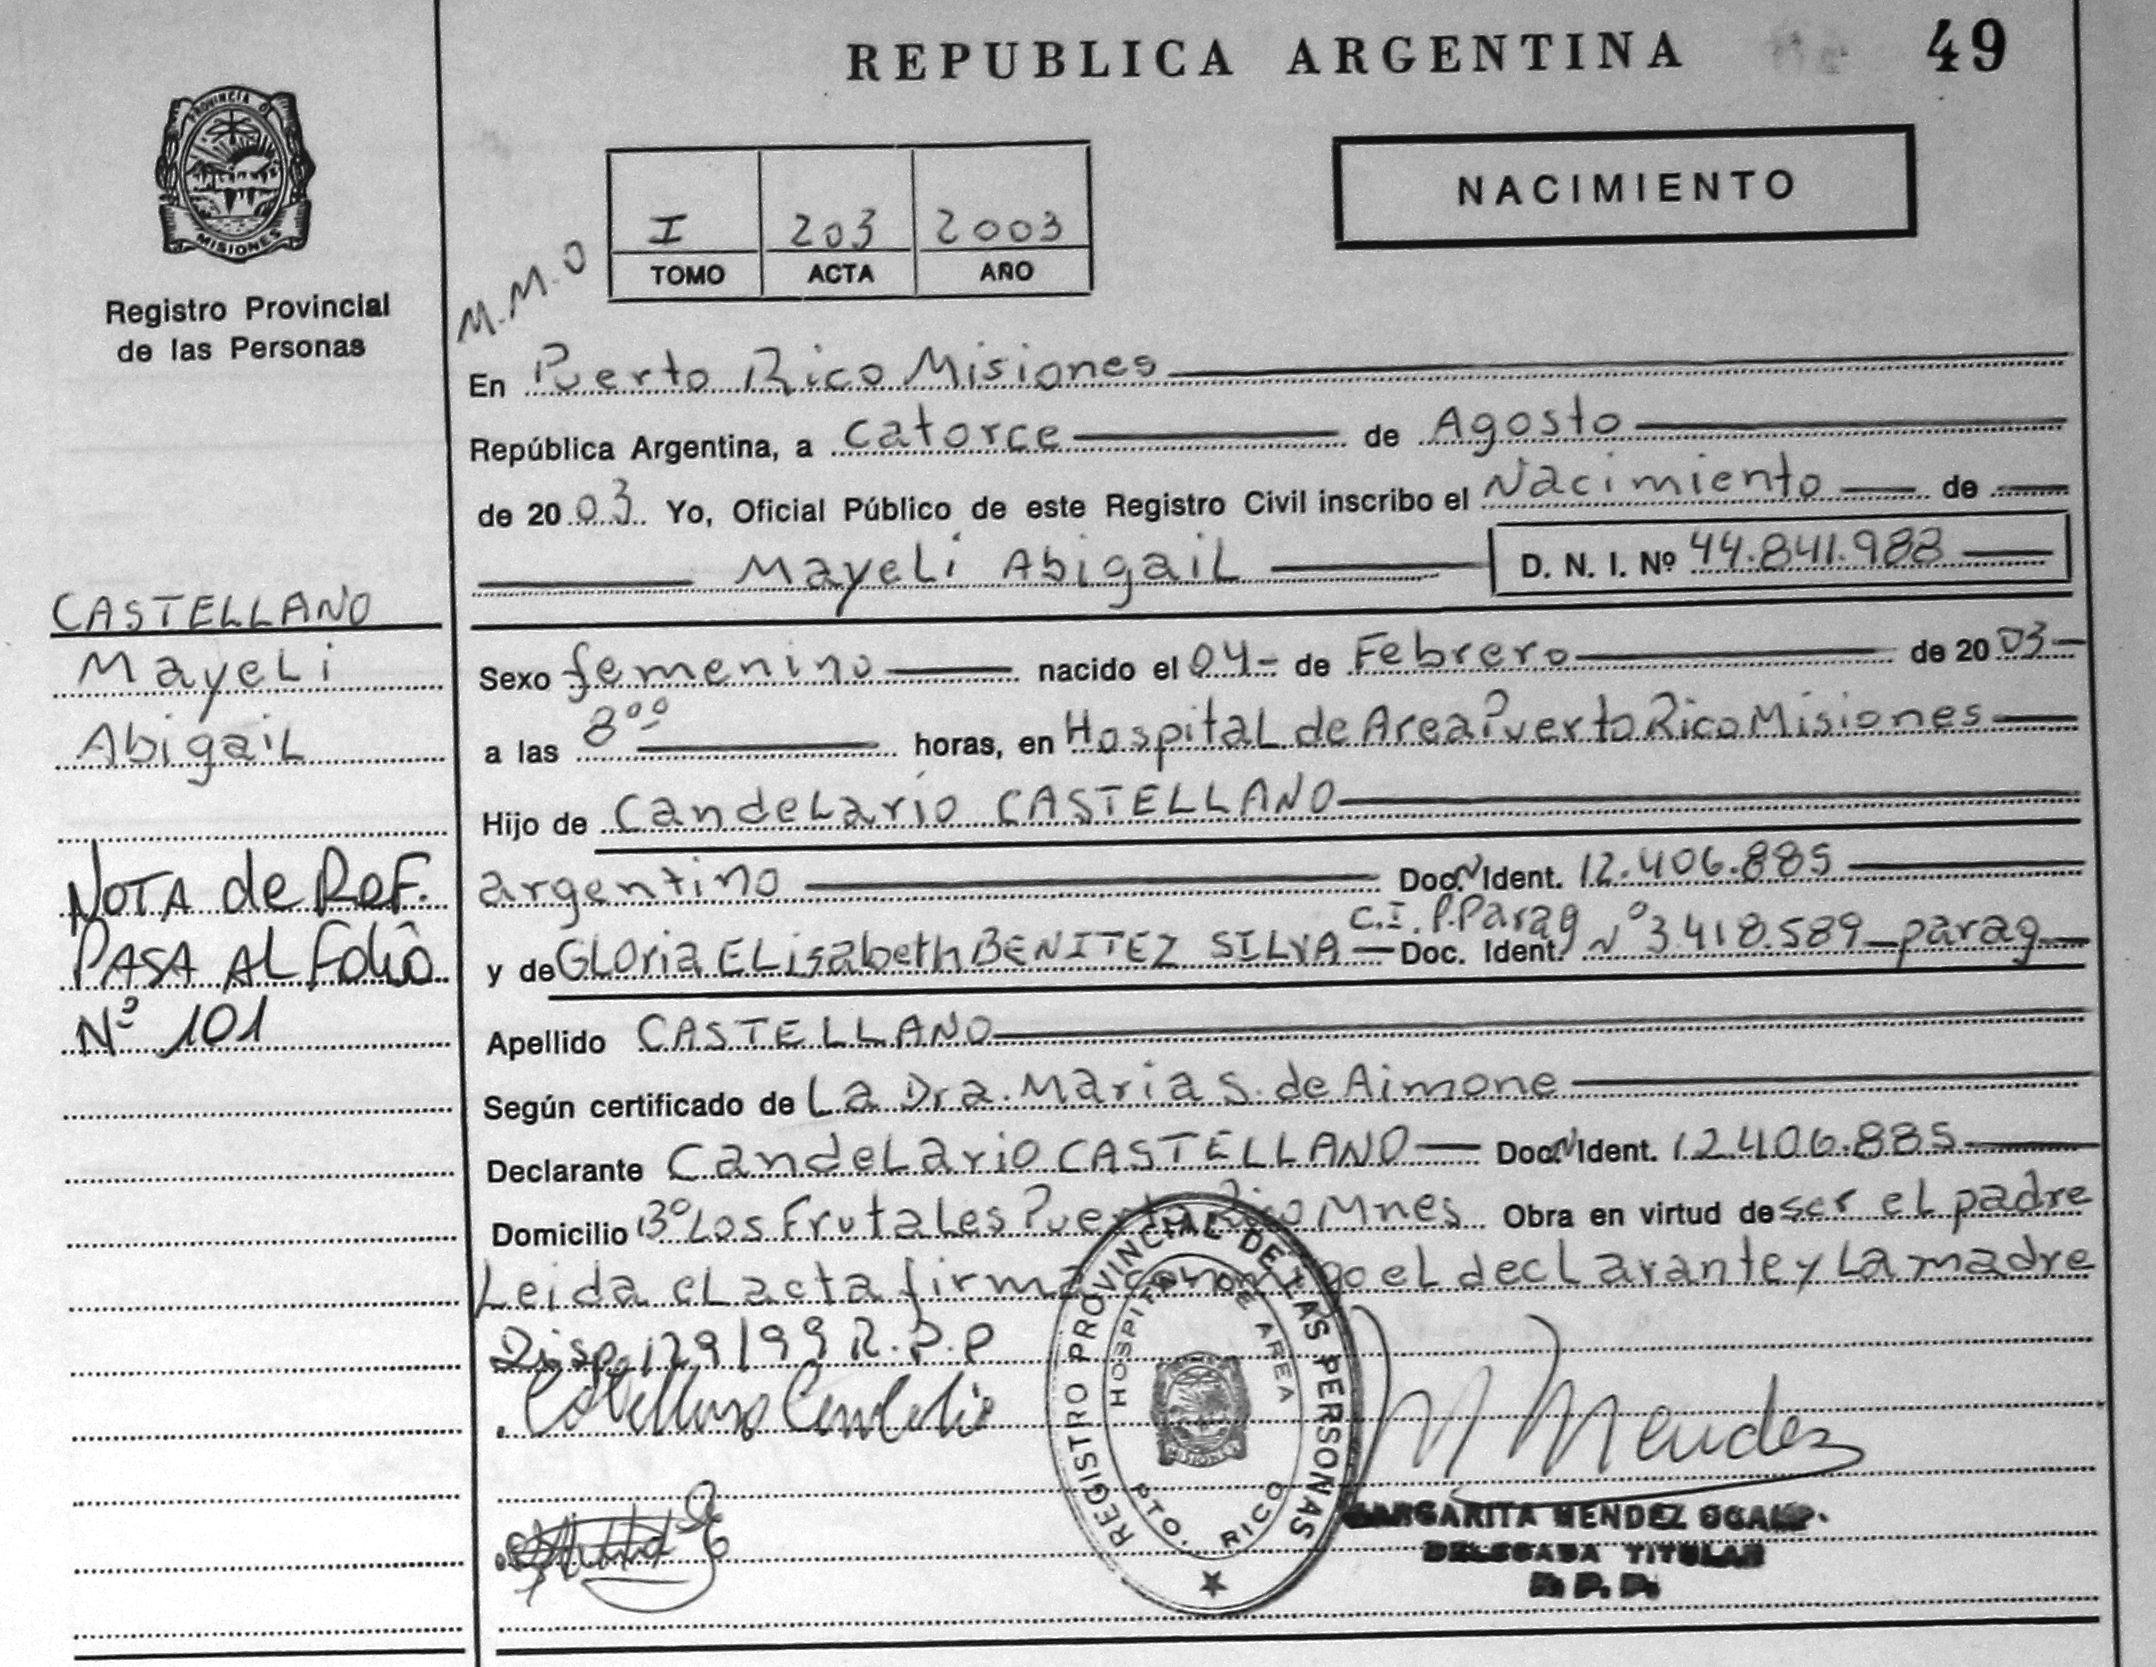 REPUBLICA ARGENTINA 49
PROVINCIA DE
MISIONES
Registro Provincial
de las Personas
NACIMIENTO
I 203 2003
TOMO ACTA AÑO
M.M.O
En Puerto Rico Misiones
República Argentina, a catorce de Agosto
de 2003 Yo, Oficial Público de este Registro Civil inscribo el Nacimiento de
Mayeli Abigail D. N. I. Nº 44.841.988
CASTELLANO
Mayeli
Abigail
NOTA de Ref.
PASA AL Folio
Nº 101
Sexo femenino nacido el 04- de Febrero de 2003
a las 8°° horas, en Hospital de Area Puerto Rico Misiones
Hijo de Candelario CASTELLANO
argentino Doc. N Ident. 12.406.885
C.I. P. Parag
y de Gloria Elisabeth BENITEZ SILVA Doc. Ident. Nº 3.418.589 parag
Apellido CASTELLANO
Según certificado de La Dra. Maria S. de Aimone
Declarante Candelario CASTELLANO Doc. N Ident. 12.406.885
Domicilio Bº Los Frutales Puerto Rico Mnes Obra en virtud de ser el padre
Leida el acta firma conmigo el declarante y la madre
Disp. 129/99 R.P.P
Castellano Candelario
M Mendez
REGISTRO PROVINCIAL DE LAS PERSONAS
HOSPITAL DE AREA
MISIONES
PTO. RICO
MARGARITA MENDEZ OCAMP.
DELEGADA TITULAR
R. P. P.